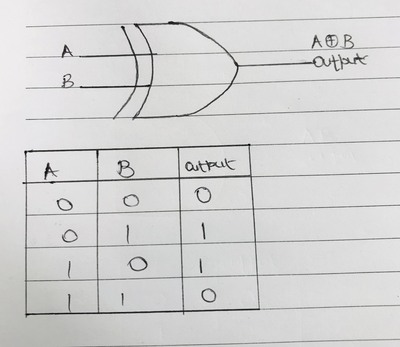 A⊕B
A
output
B
A B output
0 0 0
0 1 1
1 0 1
1 1 0